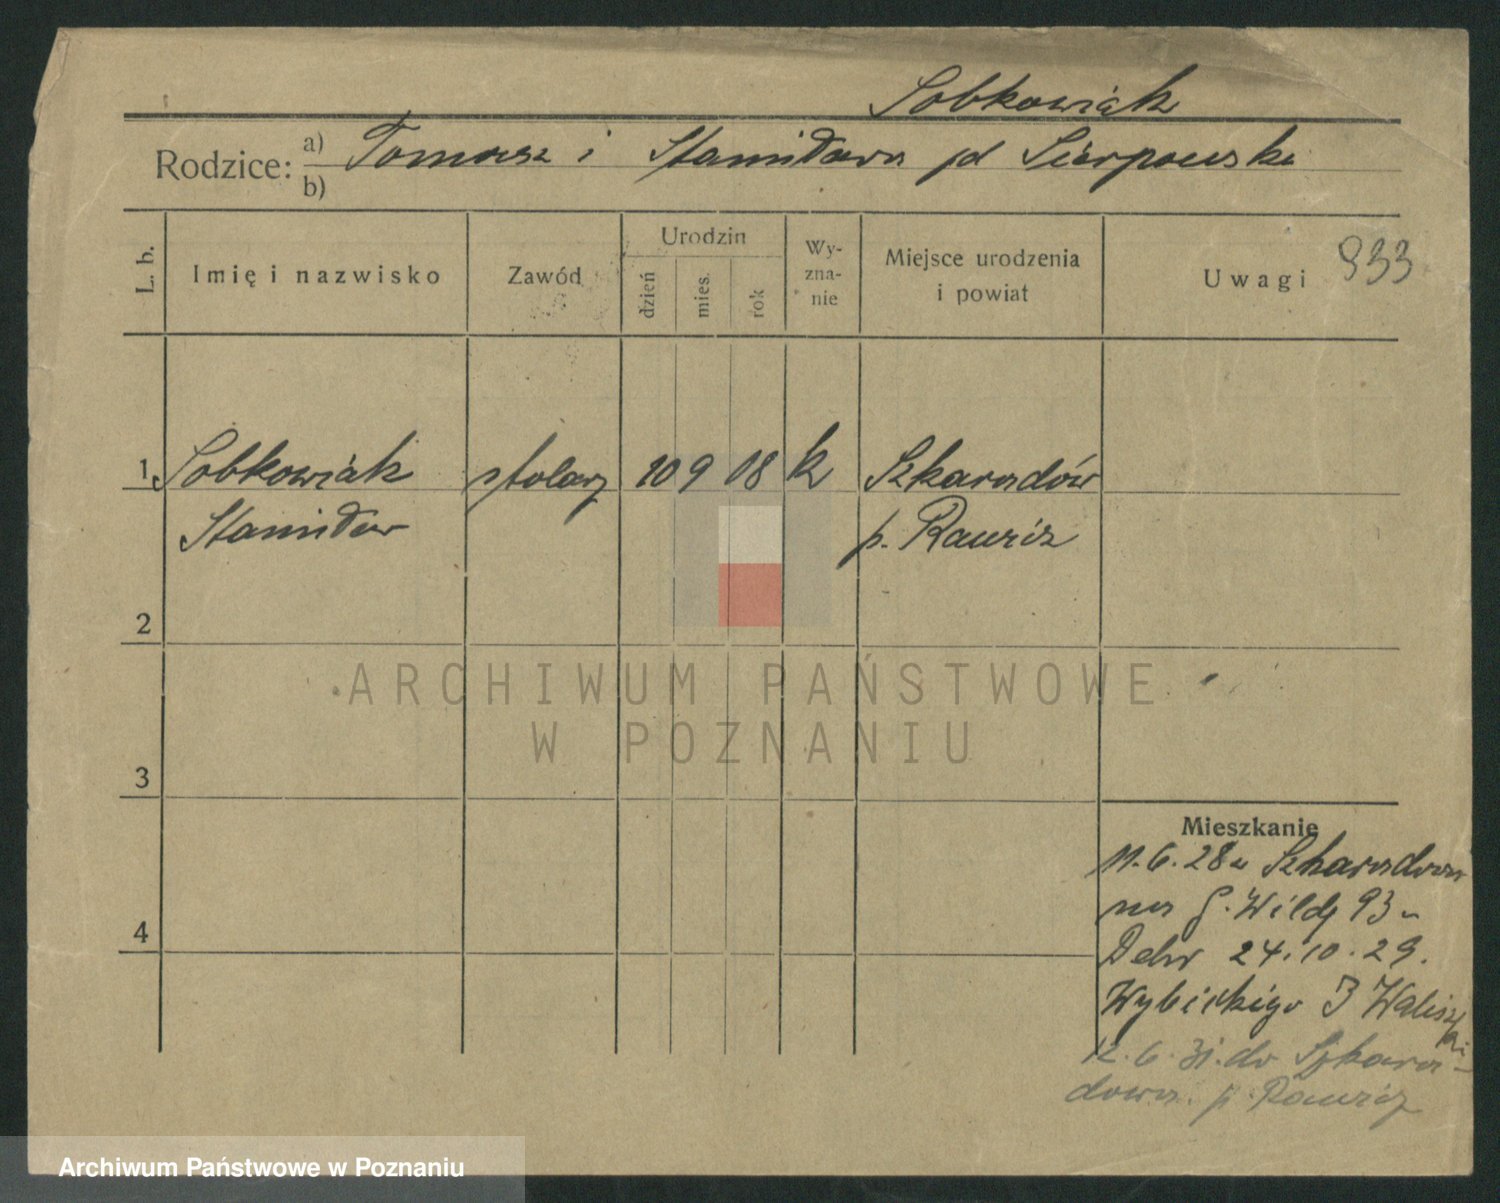 Sobkowiak
Rodzice: a) Tomasz i Stanisława pd Sierpowska
b)
L. b.
Imię i nazwisko
Zawód
Urodzin
dzień
mies.
rok
Wy-
zna-
nie
Miejsce urodzenia
i powiat
Uwagi 933
1 Sobkowiak stolarz 10 9 08 k Szkaradów
Stanisław p. Rawicz
2
3
4
Mieszkanie
11.6.28 Szkaradowa
na G. Wildę 93
24.10.29.
Wybickiego 3 Waliszki
12.6.31. do Szkara-
dowa p. Rawicz
ARCHIWUM PAŃSTWOWE
W POZNANIU
Archiwum Państwowe w Poznaniu